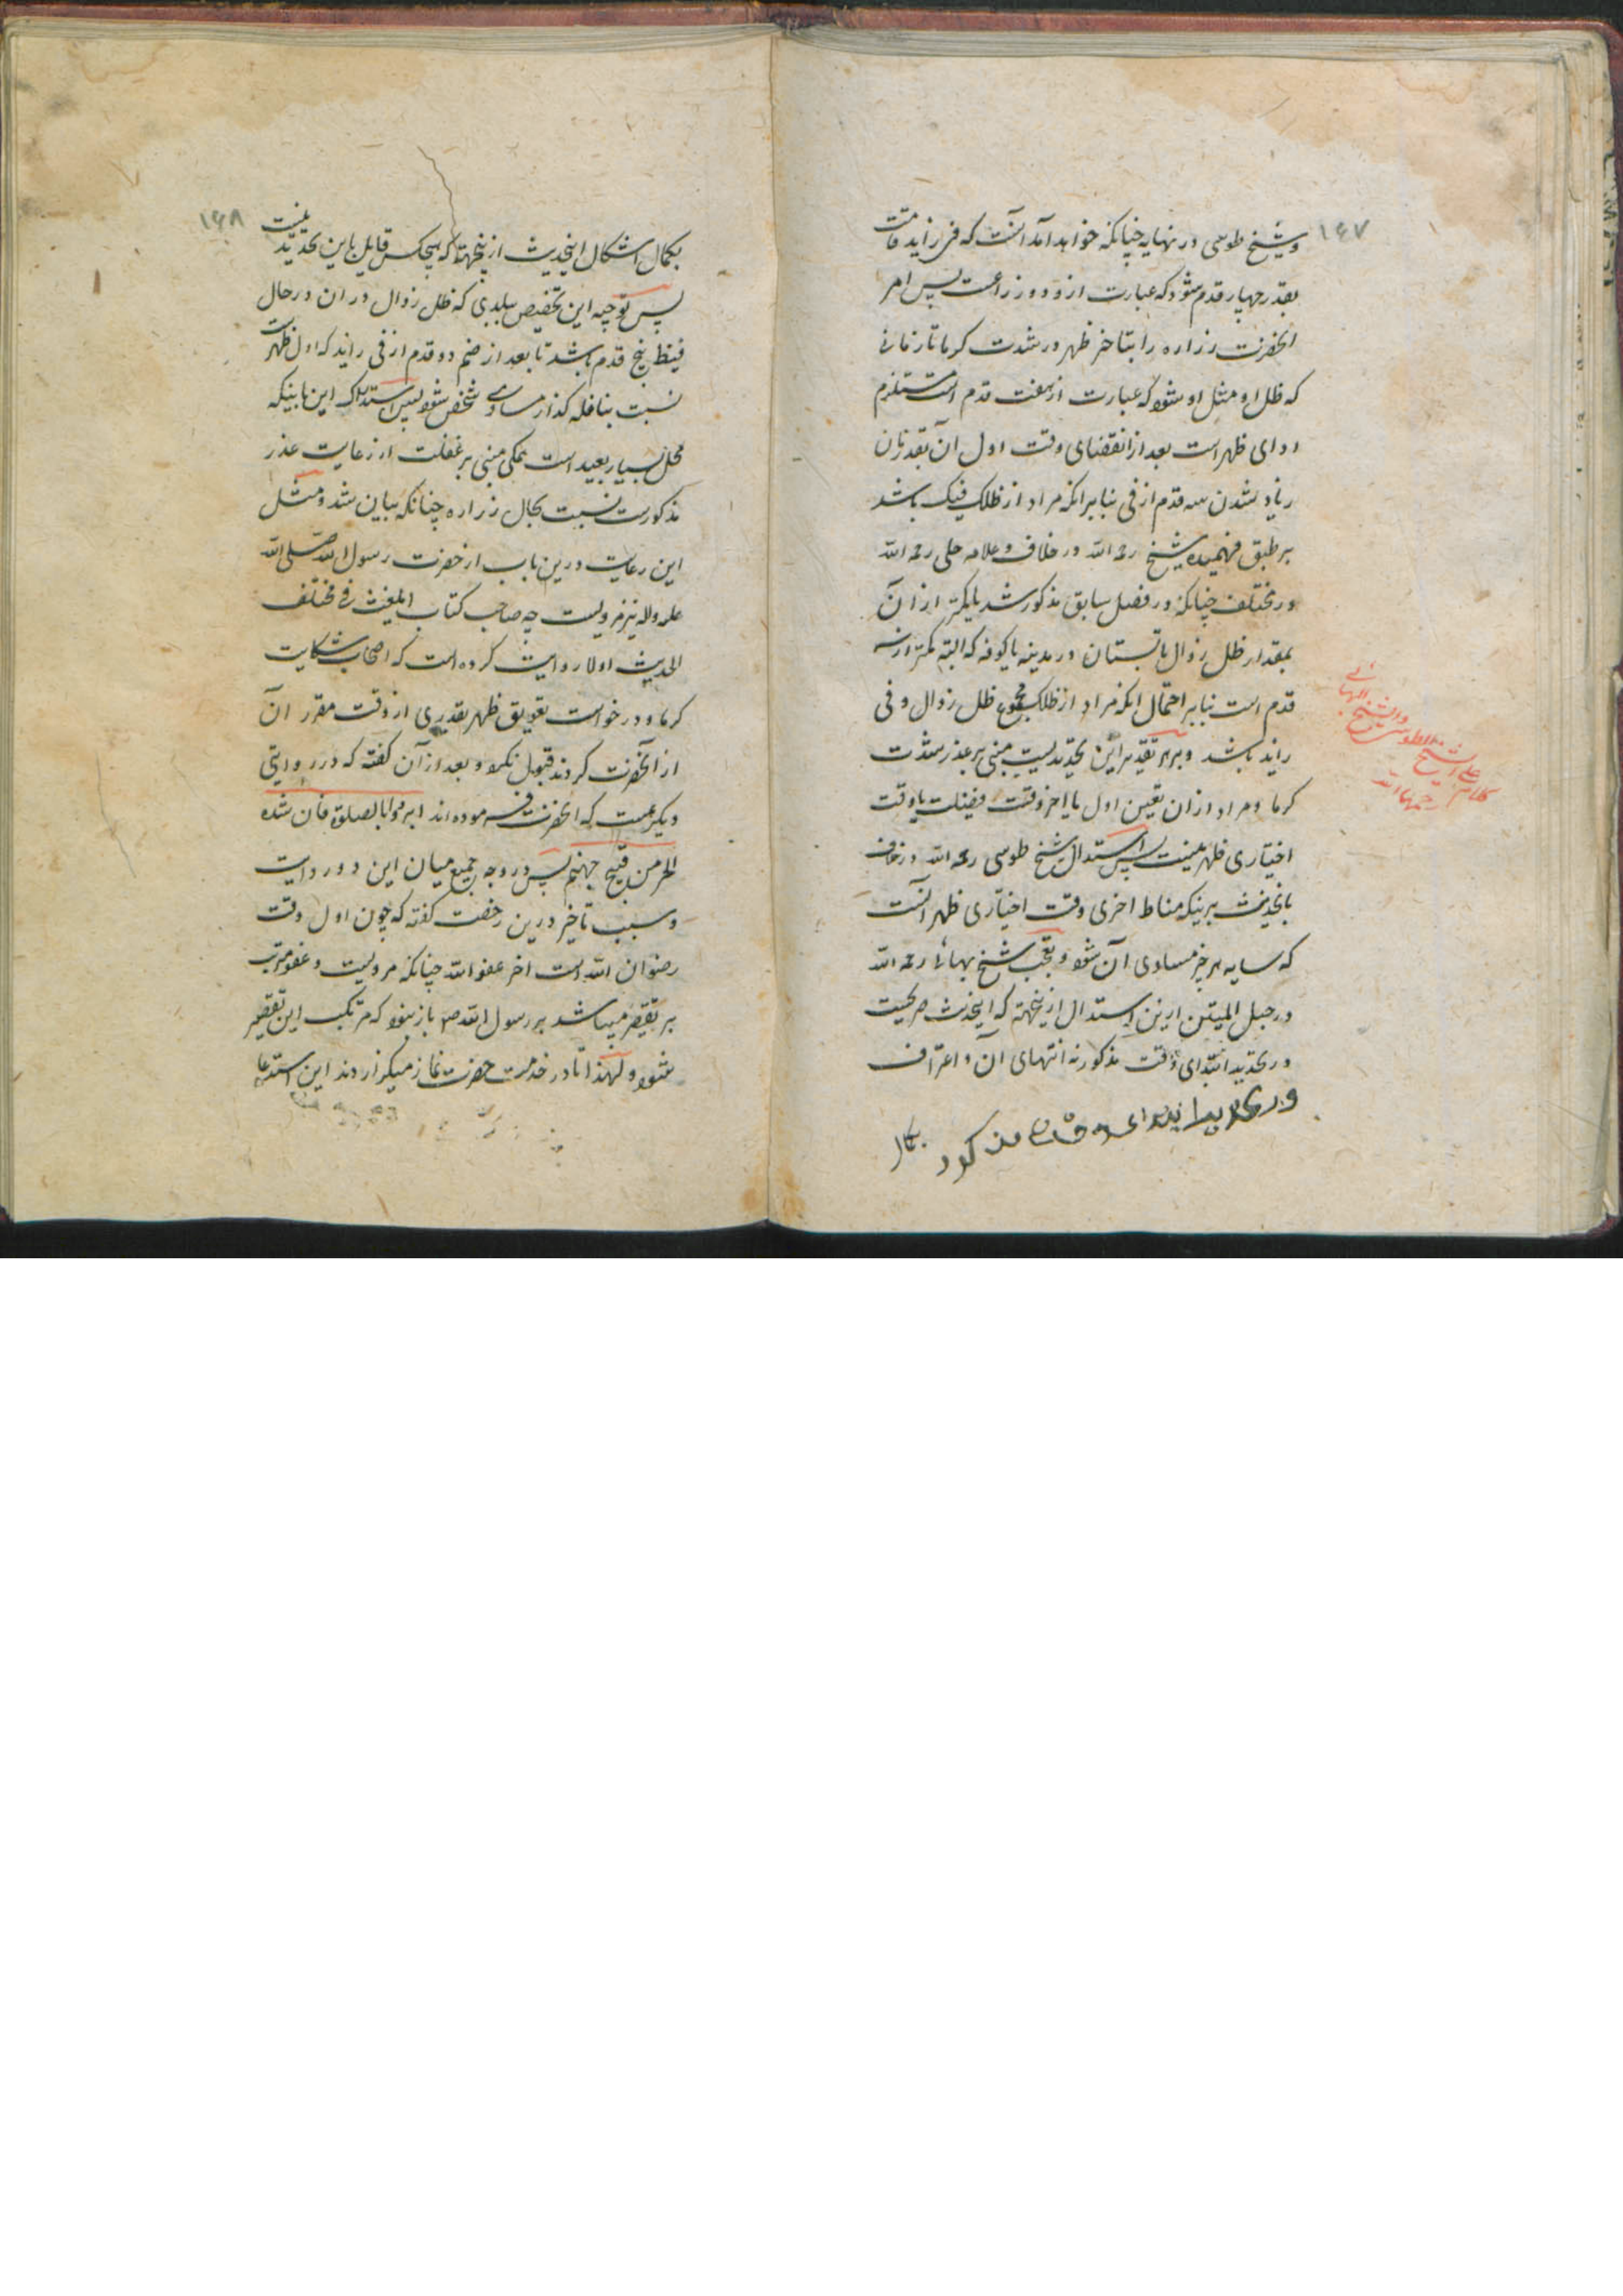 ۱۶۷
و شیخ طوسی در نهایه چنانکه خواهد آمد آنست که فی زاید قامت
بقدر چهار قدم شود که عبارت از دو ذراعست پس امر
انحضرت زراره را بتاخیر ظهر در شدت کرما تا زمانی
که ظل او مثل او شود که عبارت از هفت قدم است مستلزم
ادای ظهر است بعد از انقضای وقت اول آن بقدر زمان
زیاد شدن سه قدم از فی بنابر انکه مراد از ظلک فیئک باشد
بر طبق فهمیده شیخ رحمه الله در خلاف و علامه حلی رحمه الله
در مختلف چنانکه در فصل سابق مذکور شد یا کمتر از آن
بمقدار ظل زوال تابستان در مدینه یا کوفه که البته کمتر از سه
قدم است بنابر احتمال انکه مراد از ظلک مجموع ظل زوال و فی
زاید باشد و بر هر تقدیر این تحدیدیست مبنی بر عذر شدت
کرما و مراد از ان تعیین اول یا اخر وقت فضیلت یا وقت
اختیاری ظهر نیست پس استدلال شیخ طوسی رحمه الله در خلاف
باینحدیث بر اینکه مناط اخری وقت اختیاری ظهر آنست
که سایه هر چیز مساوی آن شود و تعجب شیخ بهائی رحمه الله
در حبل المتین ازین استدلال ازینجهة که اینحدیث صریحست
در تحدید ابتدای وقت مذکور نه انتهای آن و اعتراف
در تحدید ابتدای وقت مذکور
بکمال
کلام علی الشیخ الطوسی و الشیخ البهائی رحمهما الله
۱۶۸
بکمال اشکال اینحدیث ازینجهة که هیچکس قایل باین تحدید نیست
پس توجیه این تخصیص ببلدی که ظل زوال در ان در حال
قیظ پنج قدم باشد تا بعد از ضم دو قدم از فی زاید که اول ظهر است
نسبت بنافله کذار مساوی شخص شود پس استدراک این باینکه
محل بسیار بعید است همکی مبنی بر غفلت از رعایت عذر
مذکورست نسبت بحال زراره چنانکه بیان شد و مثل
این رعایت درین باب از حضرت رسول الله صلی الله
علیه و اله نیز مرویست چه صاحب کتاب المغیث فی مختلف
الحدیث اولا روایت کرده است که اصحاب شکایت
کرما و درخواست تعویق ظهر بقدری از وقت مقرر آن
از آنحضرت کردند قبول نکرد و بعد از آن کفته که در روایتی
دیکر هست که انحضرت فرموده اند ابردوا بالصلوة فان شدة
الحر من فیح جهنم پس در وجه جمع میان این دو روایت
و سبب تاخیر درین رخصت کفته که چون اول وقت
رضوان الله است اخر عفو الله چنانکه مرویست و عفو مترتب
بر تقصیر میباشد بر رسول الله ص باز نبود که مرتکب این تقصیر
شود و لهذا انا در خدمت حضرت نماز میکزاردند این استدعا